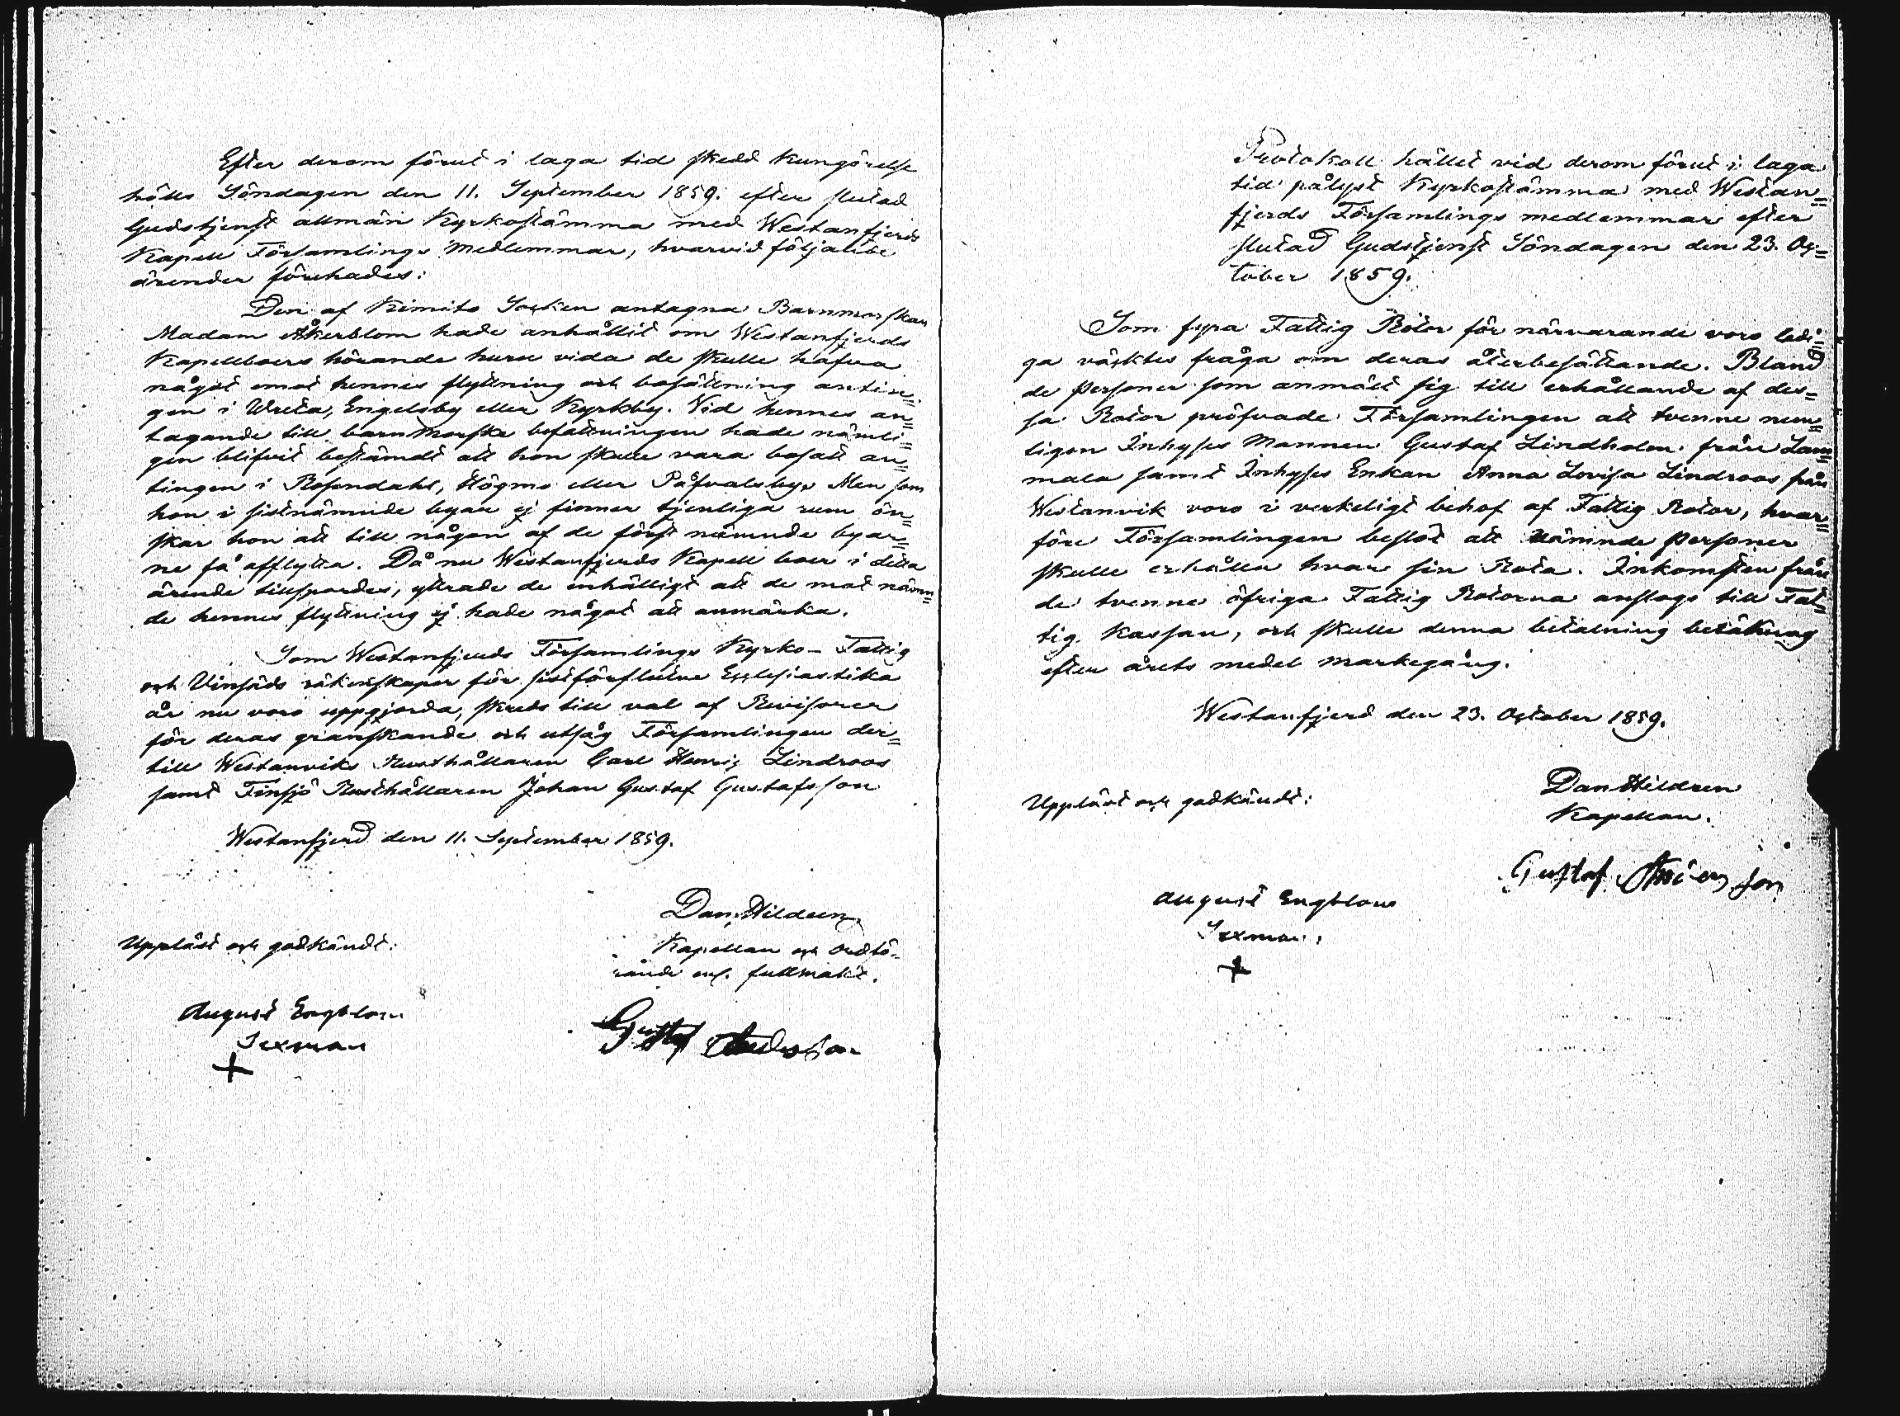 Efter derom förut i laga tid skedd kungörelse
hölls Söndagen den 11. September 1859. efter slutad
Gudstjenst allmän Kyrkostämma med Westanfjerds
Kapell Församlings Medlemmar, hvarvid följande
ärender förehades:
Den af Kimito Socken antagna Barnmorskan
Madam Åkerblom hade anhållit om Westanfjerds
Kapellboers hörande huru vida de skulle hafva
något emot hennes flyttning och bosättning antin-
gen i Wreta, Engelsby eller Kyrkby. Vid hennes an=
tagande till barnmorske befattningen hade nämli=
gen blifvit bestämdt att hon skulle vara bosatt an=
tingen i Rosendahl, Högmo eller Påfvalsby. Men som
hon i sistnämnde byar ej finner tjenliga rum ön=
skar hon att till någon af de först nämnde byar=
ne få afflytta. Då nu Westanfjerds Kapell boer i detta
ärende tillspordes, yttrade de enhälligt att de mot nämn=
de hennes flyttning ej hade något att anmärka.
Som Westanfjerds Församlings Kyrko- Fattig
och Vinsäds räkenskaper för sistförflutne Ecclesiastika
år nu voro uppgjorda, skreds till val af Revisorer
för deras granskande och utsåg Församlingen der=
till Westanviks Rusthållaren Carl Henric Lindroos
samt Finsjö Rusthållaren Johan Gustaf Gustafsson
Westanfjerd den 11. September 1859.
Dan. Hildeen
Kapellan och Ordfö-
rande enl. fullmakt.
Uppläst och godkändt:
August Engblom
Sexman
+
Gustaf Andersson
Protokoll hållet vid derom förut i laga
tid pålyst Kyrkostämma med Westan=
fjerds Församlings medlemmar efter
slutad Gudstjenst Söndagen den 23. Oc=
tober 1859.
Som fyra Fattig Rotor för närvarande voro ledi=
ga väcktes fråga om deras återbesättande. Bland
de personer som anmält sig till erhållande af des=
sa Rotor pröfvade Församlingen att tvenne nem=
ligen Inhyses Mannen Gustaf Lindholm från Lam=
mala samt Inhyses Enkan Anna Lovisa Lindroos från
Westanvik voro i verkeligt behof af Fattig Rotor, hvar=
före Församlingen beslöt att nämnde personer
skulle erhålla hvar sin Rota. Inkomsten från
de tvenne öfriga Fattig Rotorna anslogs till Fat=
tig Kassan, och skulle denna betalning beräknas
efter årets medel markegång.
Westanfjerd den 23. October 1859.
Dan Hildeen
Kapellan.
Uppläst och godkändt:
Gustaf Andersson
August Engblom
Sexman.
+